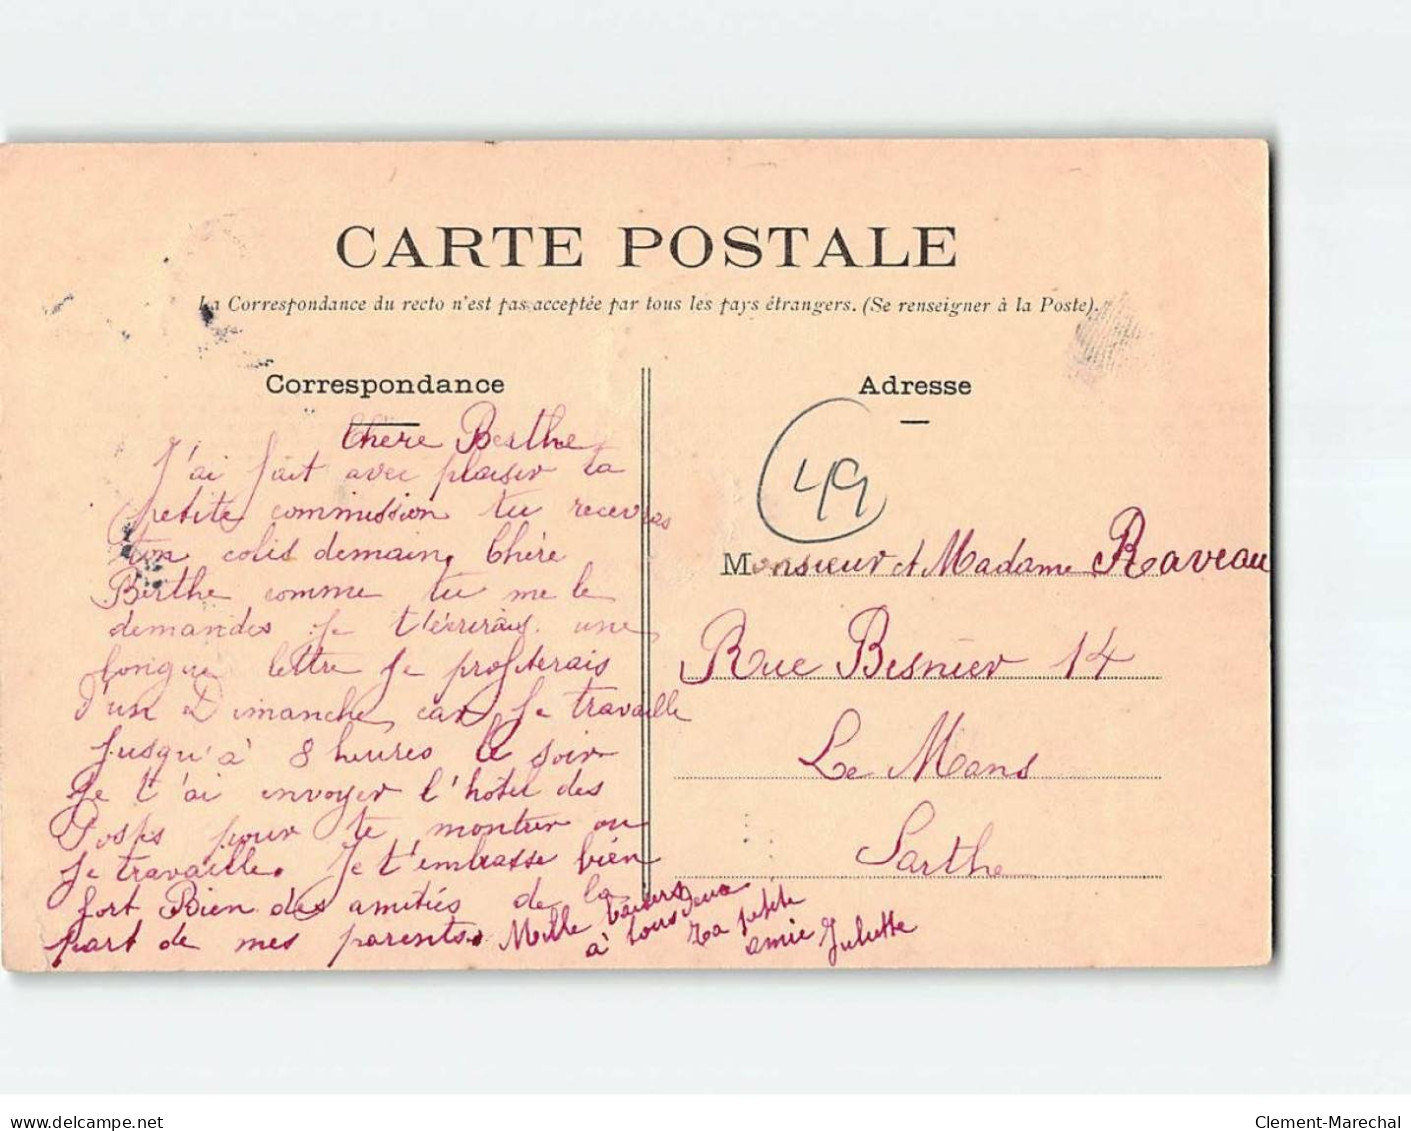 CARTE POSTALE
La Correspondance du recto n'est pas acceptée par tous les pays étrangers. (Se renseigner à la Poste).
Correspondance
Chère Berthe
J'ai fait avec plaisir ta
petite commission tu recevras
ton colis demain. Chère
Berthe comme tu me le
demandes je t'écrirais une
longue lettre je profiterais
d'un Dimanche car je travaille
jusqu'à 8 heures le soir
Je t'ai envoyer l'hôtel des
Postes pour te montrer ou
je travaille. Je t'embrasse bien
fort Bien des amitiés de la
part de mes parents. Mille baisers
à tous deux
ta petite
amie Juliette
Adresse
49
Monsieur et Madame Raveau
Rue Besnier 14
Le Mans
Sarthe
www.delcampe.net
Clement-Marechal